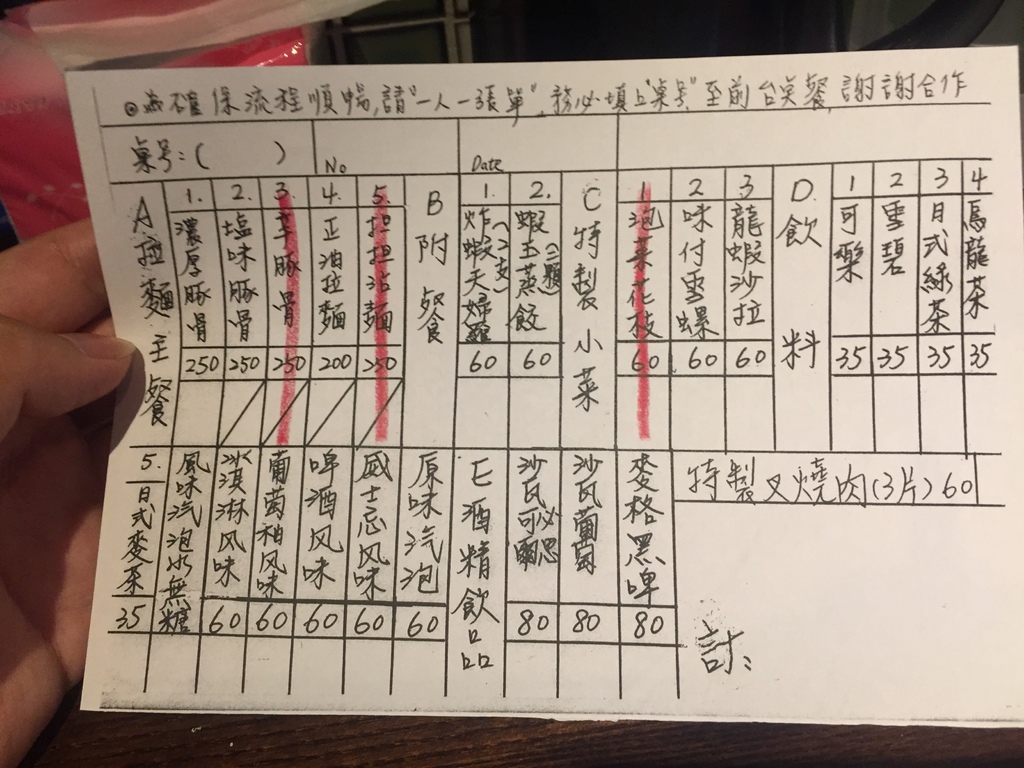 ⊙為確保流程順暢,請"一人一張單",務必填上"桌号"至前台点餐,謝謝合作
桌号:(  )
No
Date
A拉麵主餐
1. 濃厚豚骨 250
2. 塩味豚骨 250
3. 辛豚骨 250
4. 正油拉麵 200
5. 担担沾麵 250
B附餐
1. 炸蝦天婦羅(2支) 60
2. 蝦玉蒸餃(三顆) 60
C特製小菜
1 泡菜花枝 60
2 味付雪螺 60
3 龍蝦沙拉 60
D.飲料
1 可樂 35
2 雪碧 35
3 日式綠茶 35
4 烏龍茶 35
5. 日式麥茶 35
風味汽泡水無糖
冰淇淋风味 60
葡萄柚风味 60
啤酒风味 60
威士忌风味 60
原味汽泡 60
E酒精飲品
沙瓦可必思 80
沙瓦葡萄 80
麥格黑啤 80
特製叉燒肉(3片)60
討: